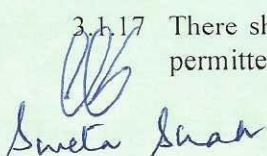 3.1.17 There sh
permitte
Sweta Shah